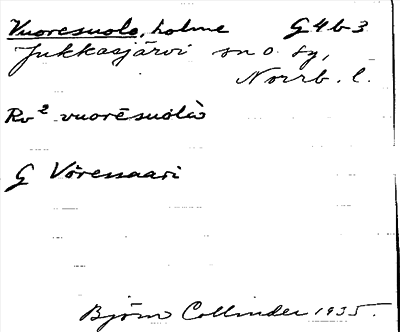 Vuoresuolo, holme G4b3
Jukkasjärvi sn o. sg,
Norrb. l.
Rv² vuorēsuolà
G Vöressaari
Björn Collinder 1935.